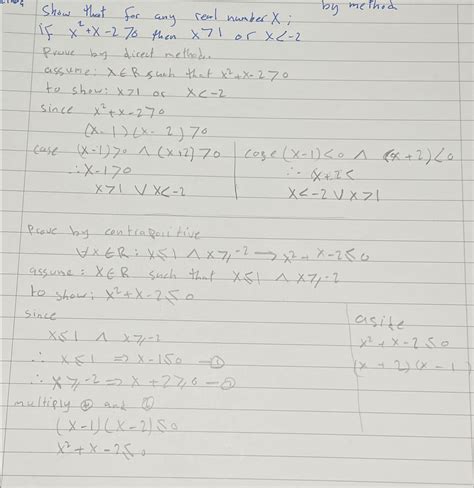 by method
Show that for any real number x;
if x²+x-2>0 then x>1 or x<-2
Prove by direct method.
assume: x∈R such that x²+x-2>0
to show: x>1 or x<-2
since x²+x-2>0
(x-1)(x-2)>0
case (x-1)>0 ∧ (x+2)>0
∴x-1>0
x>1 ∨ x<-2
case (x-1)<0 ∧ (x+2)<0
∴ x+2<
x<-2 ∨ x>1
Prove by contrapositive
∀x∈R: x≤1 ∧ x≥-2 → x²+x-2≤0
assume: x∈R such that x≤1 ∧ x≥-2
to show: x²+x-2≤0
since
x≤1 ∧ x≥-2
∴ x≤1 ⇒ x-1≤0 - ①
∴ x≥-2 ⇒ x+2≥0 - ②
multiply ② and ①
(x-1)(x-2)≤0
x²+x-2≤0
aside
x²+x-2≤0
(x+2)(x-1)